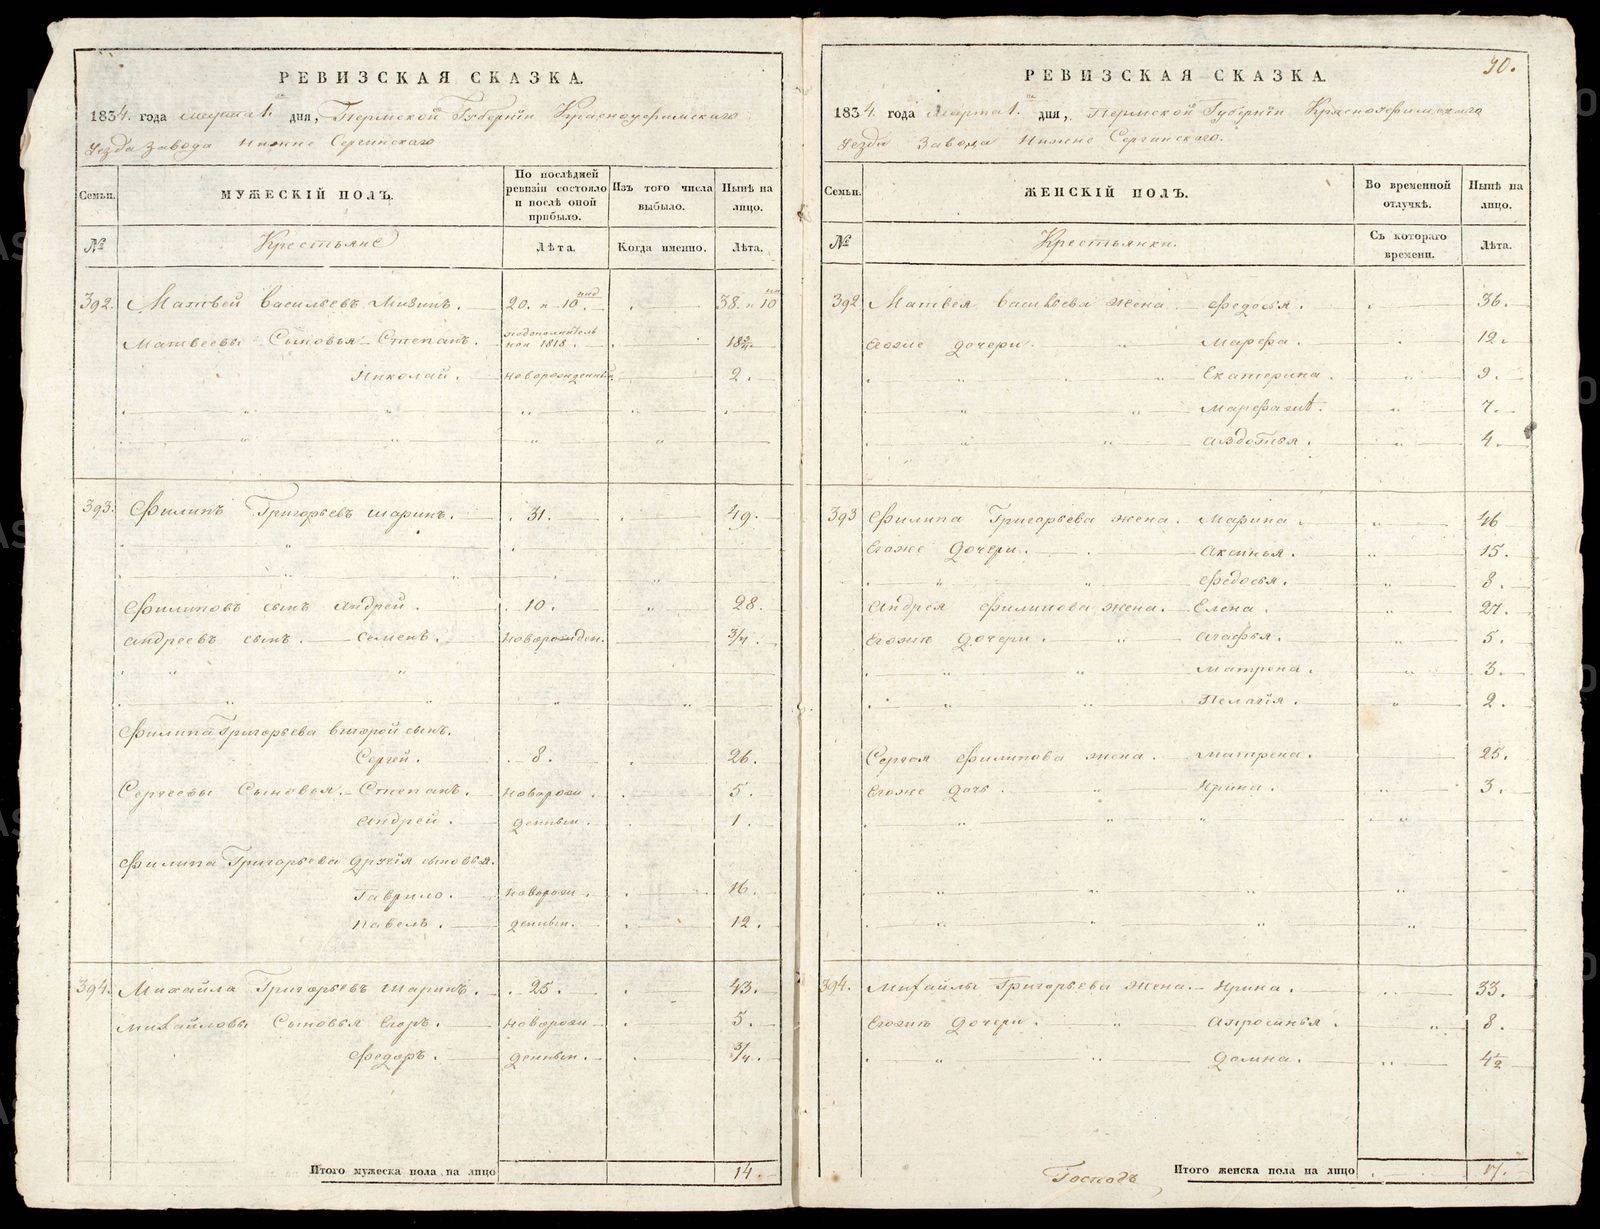 РЕВИЗСКАЯ СКАЗКА.
1834. года марта 1. дня, Пермской Губернiи Красноуфимскаго
Уезда Завода Нижне Сергинскаго
Семьи.
МУЖЕСКІЙ ПОЛЪ.
По послѣдней ревизіи состояло и послѣ оной прибыло.
Изъ того числа выбыло.
Нынѣ на лицо.
№
Крестьяне
Лѣта.
Когда именно.
Лѣта.
392. Матвей Васильевъ. 20. и 10. 38. и 10
Матвеевы Сыновья Степанъ. 1818.
Николай. новорожденный 2.
393. Филипъ Григорьевъ Шаринъ. 31. 49.
Филиповъ сынъ Андрей. 10. 28.
Андреевъ сынъ. Семенъ. новорожден. 3/4.
Филипа Григорьева второй сынъ.
Сергей. 8. 26.
Сергеевы Сыновья. Степанъ. новорож. 5.
Андрей. денныи. 1.
Филипа Григорьева другiя сыновья.
Гаврило. новорож. 16.
Павелъ. денныи. 12.
394. Михайла Григорьевъ Шаринъ. 25. 43.
Михайловы Сыновья Егоръ. новорож 5.
Федоръ. денныи. 3/4.
Итого мужеска пола на лицо 14.
30.
РЕВИЗСКАЯ СКАЗКА.
1834. года марта 1. дня, Пермской Губернiи Красноуфимскаго
Уезда Завода Нижне Сергинскаго.
Семьи.
ЖЕНСКІЙ ПОЛЪ.
Во временной отлучкѣ.
Нынѣ на лицо.
№
Крестьянки.
Съ котораго времени.
Лѣта.
392 Матвея Васильева жена. Федосья. 36.
Егоже дочери. Марфа. 12.
Екатерина. 9.
7.
Авдотья. 4.
393 Филипа Григорьева жена. Марина. 46
Егоже Дочери. Аксинья. 15.
Федосья. 8.
Андрея Филипова жена. Елена. 27.
Егоже Дочери. Агафья. 5.
Матрена. 3.
Пелагiя. 2.
Сергея Филипова жена. Матрена. 25.
Егоже Дочь. Ирина. 3.
394. Михайлы Григорьева жена. Ирина. 33.
Егоже Дочери. 8.
Домна. 4 1/2
Итого женска пола на лицо 17.
Господъ